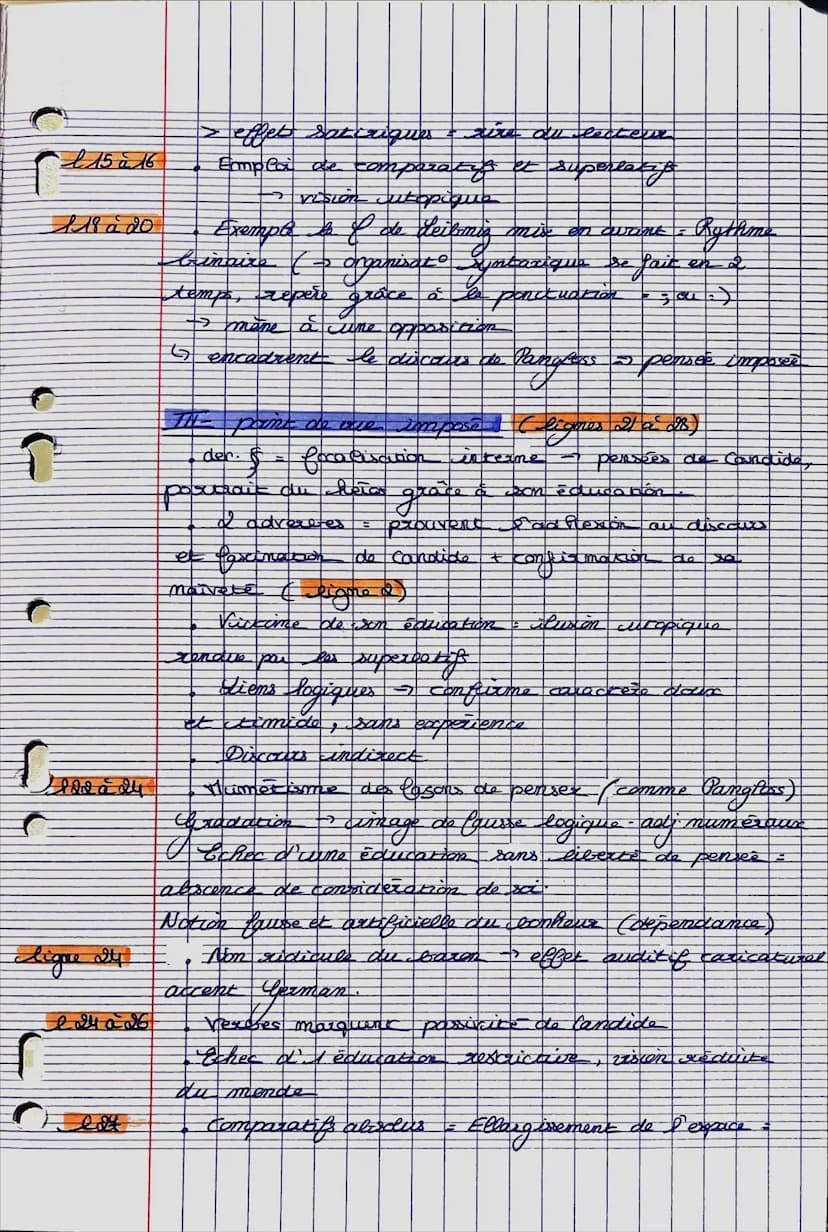 > effets satiriques = rire du lecteur
l 15 à 16 . Emploi de comparatifs et superlatifs
→ vision utopique
l 18 à 20 . Exemple la φ de Leibniz mise en avant = Rythme
binaire (→ organisat° syntaxique se fait en 2
temps, repère grâce à la ponctuation = ; ou :)
→ mène à une opposition
↳ encadrent le discours de Pangloss => pensée imposée
III - point de vue imposé (lignes 21 à 28)
. der. § = focalisation interne → pensées de Candide,
portrait du héros grâce à son éducation.
. 2 adverbes = prouvent l'adhésion au discours
et fascination de Candide + confirmation de sa
naïveté (ligne 2)
. Victime de son éducation = ilusion utopique
rendue par les superlatifs
. Liens logiques → confirme caractère doux
et timide, sans expérience
. Discours indirect
l 22 à 24 . Mimétisme des façons de penser (comme Pangloss)
Gradation → image de fausse logique - adj numéraux
Echec d'une éducation sans liberté de pensée =
absence de considération de soi.
Notion fausse et artificielle du bonheur (dépendance)
ligne 24 . Non ridicule du baron → effet auditif caricatural
accent German.
l 24 à 26 . Verbes marquent passivité de Candide
. Echec d'1 éducation restrictive, vision réduite
du monde
l 27 . Comparatifs absolus = Ellargissement de l'espace =